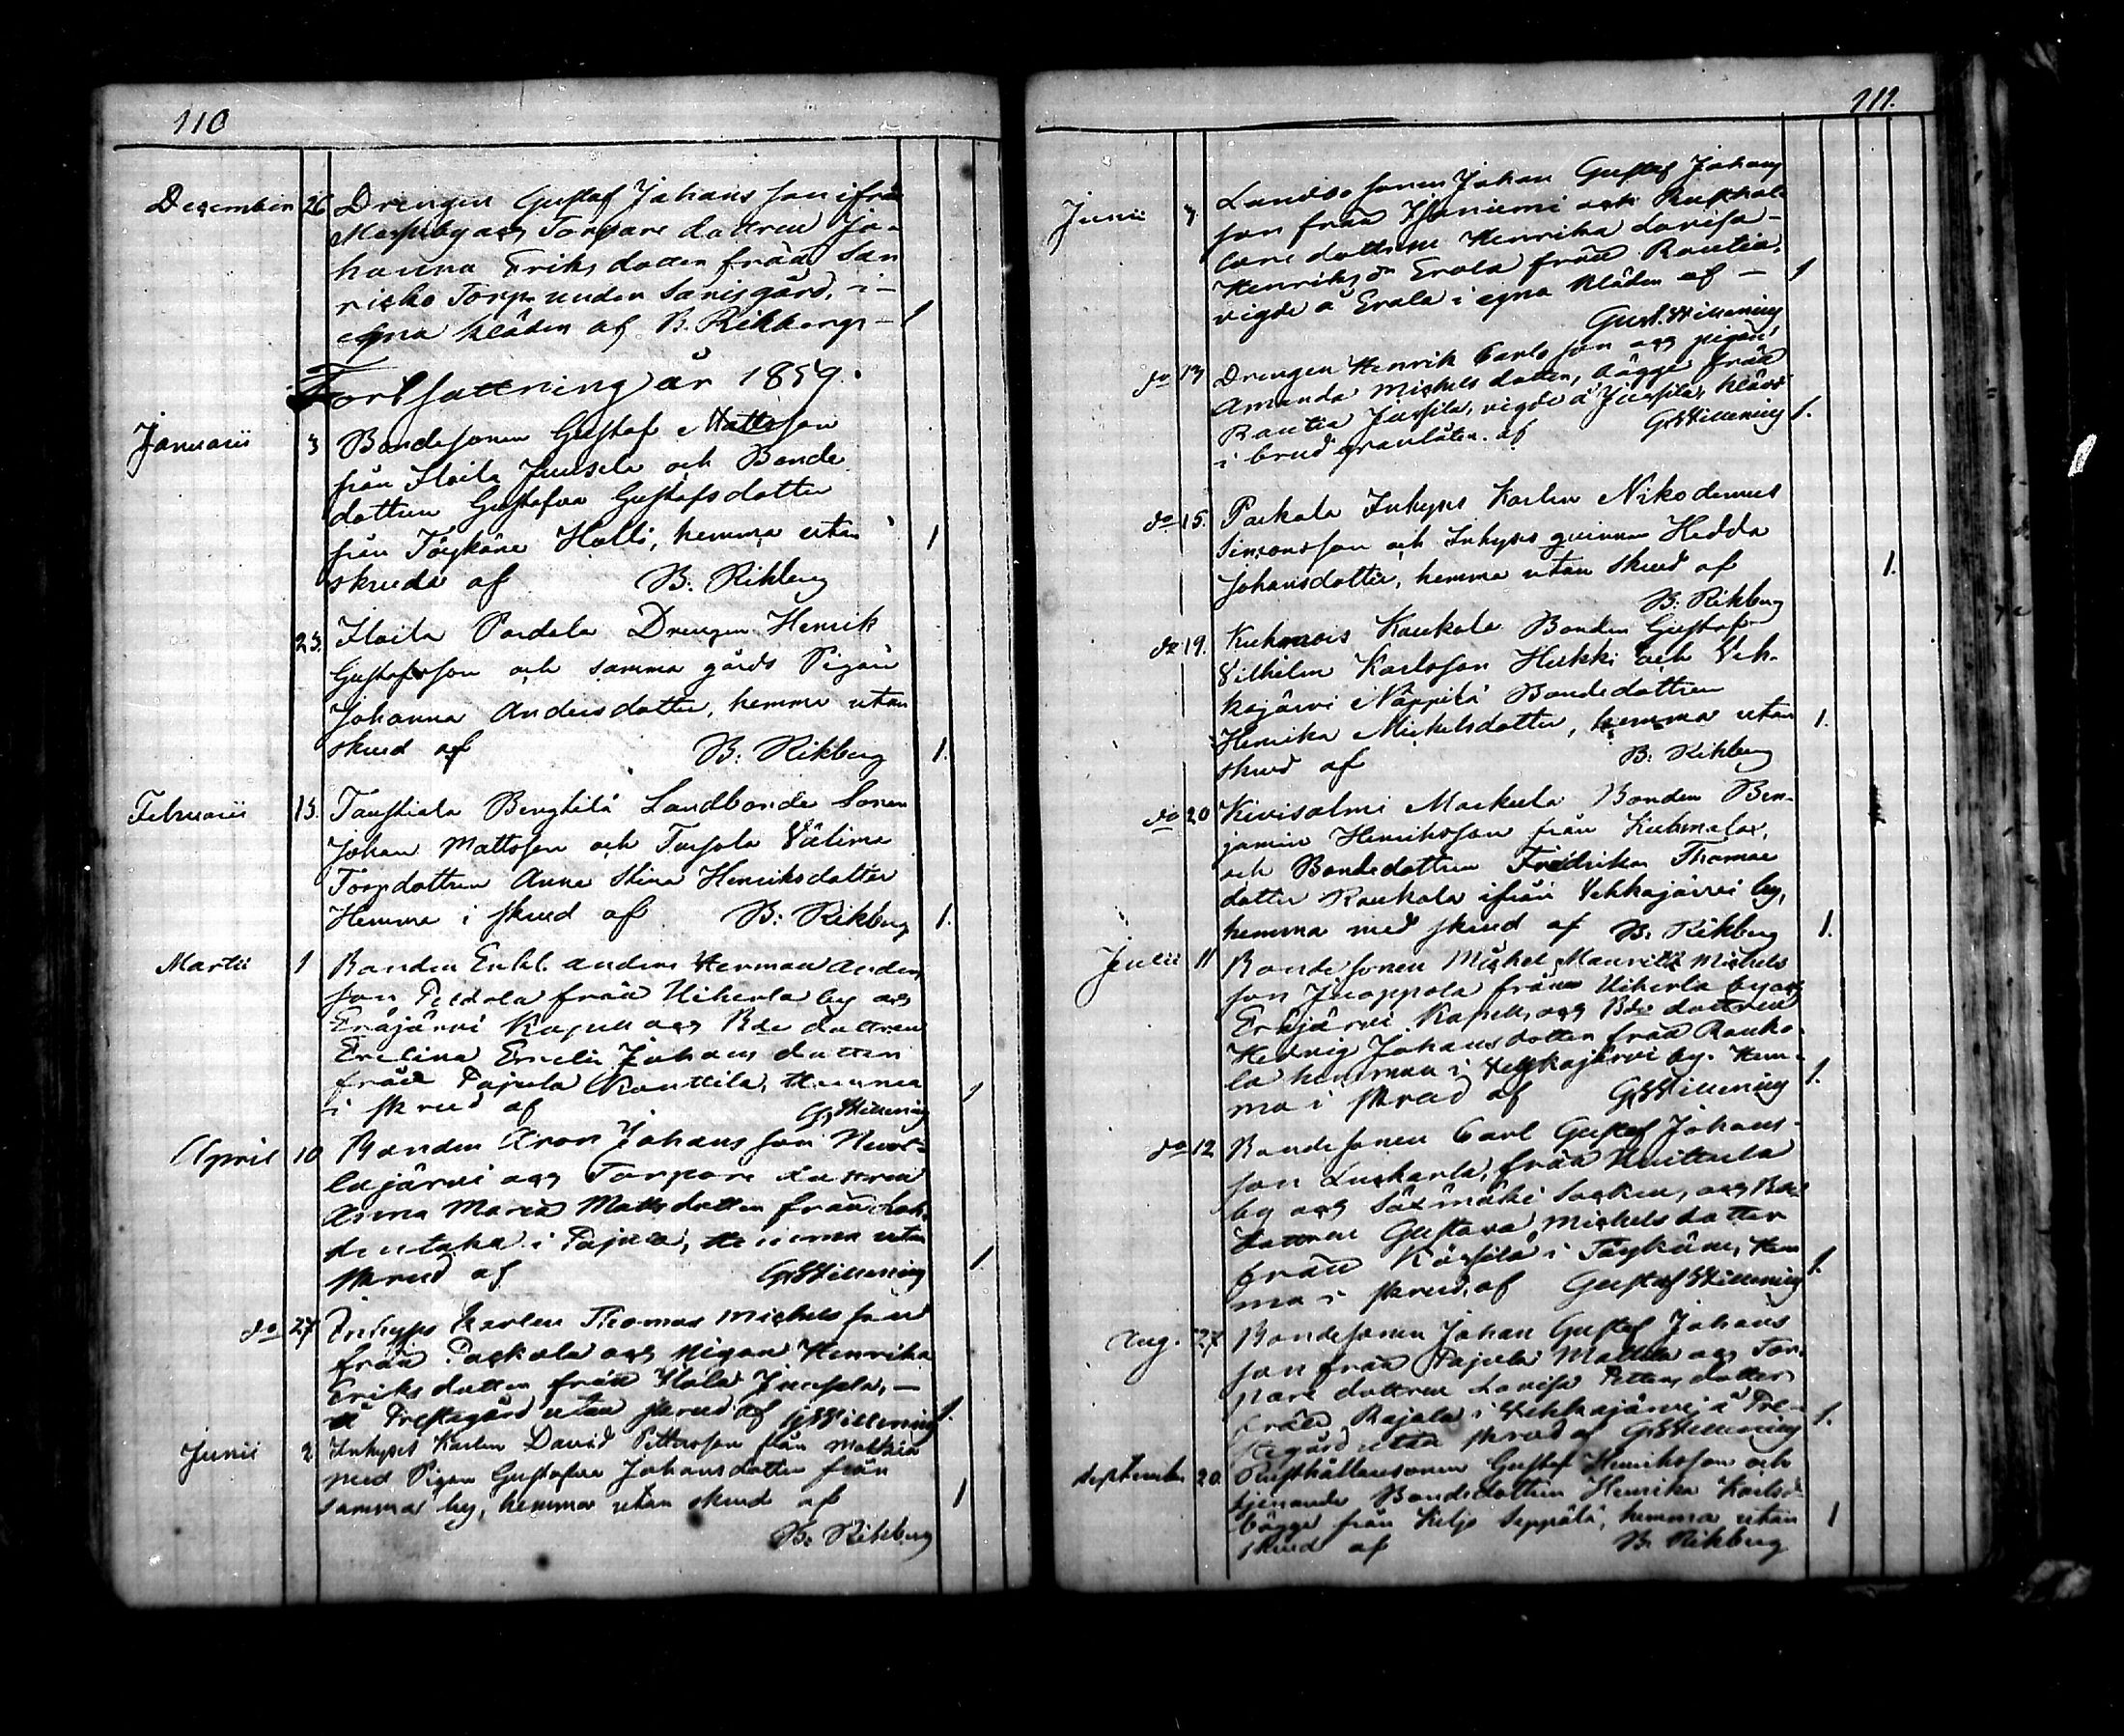 110
December 26 Drengen Gustaf Johansson ifrån
by och Torpare dottren Jo-
hanna Eriks dotter från San
risko Torp under Sarisgård, i -
egna kläder af B. Rikberg - 1
Fortsattning år 1859.
Januarii 3 Bondesonen Gustaf Mattsson
från Iltoila Juusela och Bonde
dottren Gustafva Gustafsdotter
från Töykäne Halli, hemma utan 1
skruda af B. Rikberg
23. Iltoila Pardala Drengen Henrik
Gustafsson och samma gårds Pigan
Johanna Andersdotter, hemma utan
skrud af B: Rikberg 1.
Februarii 13. Taustiala Benghtilä Landbonde Sonen
Johan Mattsson och Tursola Välima
Torpdottren Anna Stina Henriksdotter
Hemma i skrud af B: Rikberg 1.
Martii 1 Bonden Enkl. anders Herman anders
son Peldola från Uiherla by och
Eräjärvi Kapell och Bde dottren
Evelina Emelie Johans dotter
från Pajula Kanttila, Hemma 1
i skrud af G. Willening
April 10 Bonden Aron Johans son
lajärvi och Torpare dottren
Anna Maria Matts dotter från Lah-
dentaka i Pajula, Hemma utan
skrud af G. Willening 1
do 27 Inhyses Karlen Thomas Michels son
från Packala och pigan Henrika
Eriks dotter från Iltola Juusela, -
å Prestegård utan skrud af G. Willening 1.
Junii 2 Inhyses Karlen David Pettersson från Mattila
med Pigan Gustafva Johansdotter från
samma by, hemma utan skrud af 1
B. Rikberg
111.
Junii 7. Landbo sonen Johan Gustaf Johans
son från Isoniemi och Rusthål-
lare dottren Henrika Lovisa -
Henriksdr Erola från Rautia,
vigde å Erola i egna kläder af - 1
Gust. Willening
do 13 Drengen Henrik Carls son och pigan
Amanda Michels dotter, bägge från
Rautia Jussila, vigde å Jussila, klädd
i brud grannlåten. af G. Willening 1.
do 15. Packala Inhyses Karlen Nikodemus
Simonsson och Inhyses qvinnan Hedda
Johansdotter, hemma utan skrud af 1.
B: Rikberg
do 19. Kuhmois Kaukola Bonden Gustaf
Vilhelm Karlsson Hukki och Veh-
kajärvi Näppilä Bondedottren
Henrika Mickelsdotter, hemma utan 1.
skrud af B: Rikberg
do 20 Kivisalmi Markula Bonden Ben-
jamin Henriksson från Kuhmalax,
och Bondedottren Fredrika Thomae
dotter Raukola ifrån Vehkajärvi by,
hemma med skrud af B: Rikberg 1.
Julii 11 Bonde sonen Michel Mauritz Michels
son Juoppola från Uiherla by och
Eräjärvi Kapell, och Bde dottren
Hedvig Johansdotter från Rauko-
la hemman i Vehkajärvi by. Hem-
ma i skrud af G. Willening 1.
do 12 Bondesonen Carl Gustaf Johans-
son Luckarla, från Huittula
by och Säxmäki Socken, och Bde
dottren Gustava Michels dotter
från Kössilä i Töykäne, Hem
ma i skrud. af Gustaf Willening 1.
Aug. 27 Bondesonen Johan Gustaf Johans
son från Pajula Mattila och Tor-
pare dottren Lovisa Petters dotter
från Rajala i Vehkajärvi å Pre-
stegård utan skrud af G. Willening 1.
September 20. Rusthållaresonen Gustaf Henriksson och
tjenande Bondedottren Henrika Karlsdr
bägge från Keljo Seppälä, hemma utan 1
skrud af B. Rikberg